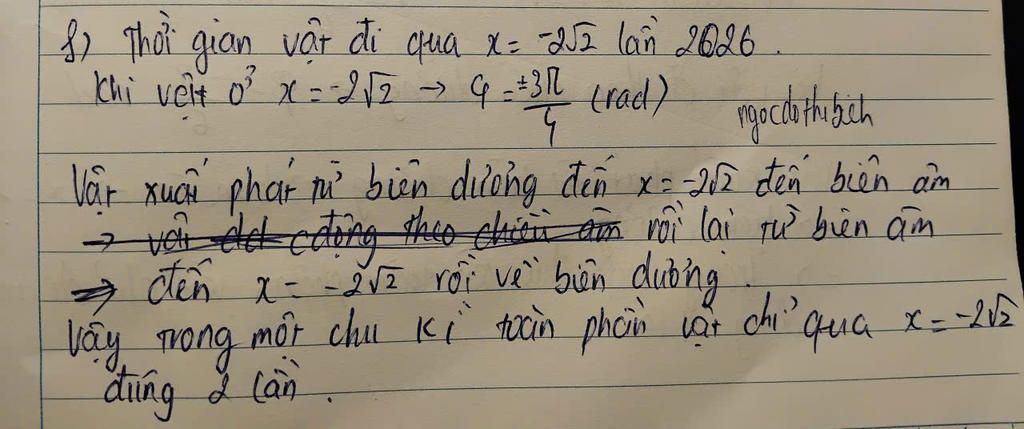 f) Thời gian vật đi qua x = -2√2 lần 2026.
Khi vật ở x = -2√2 → φ = ±3π/4 (rad)
ngocdothibich
Vật xuất phát từ biên dương đến x = -2√2 đến biên âm
→ vật dd cđộng theo chiều âm rồi lại từ biên âm
→ đến x = -2√2 rồi về biên dương.
Vậy trong một chu kì toàn phần vật chỉ qua x = -2√2
đúng 2 lần.